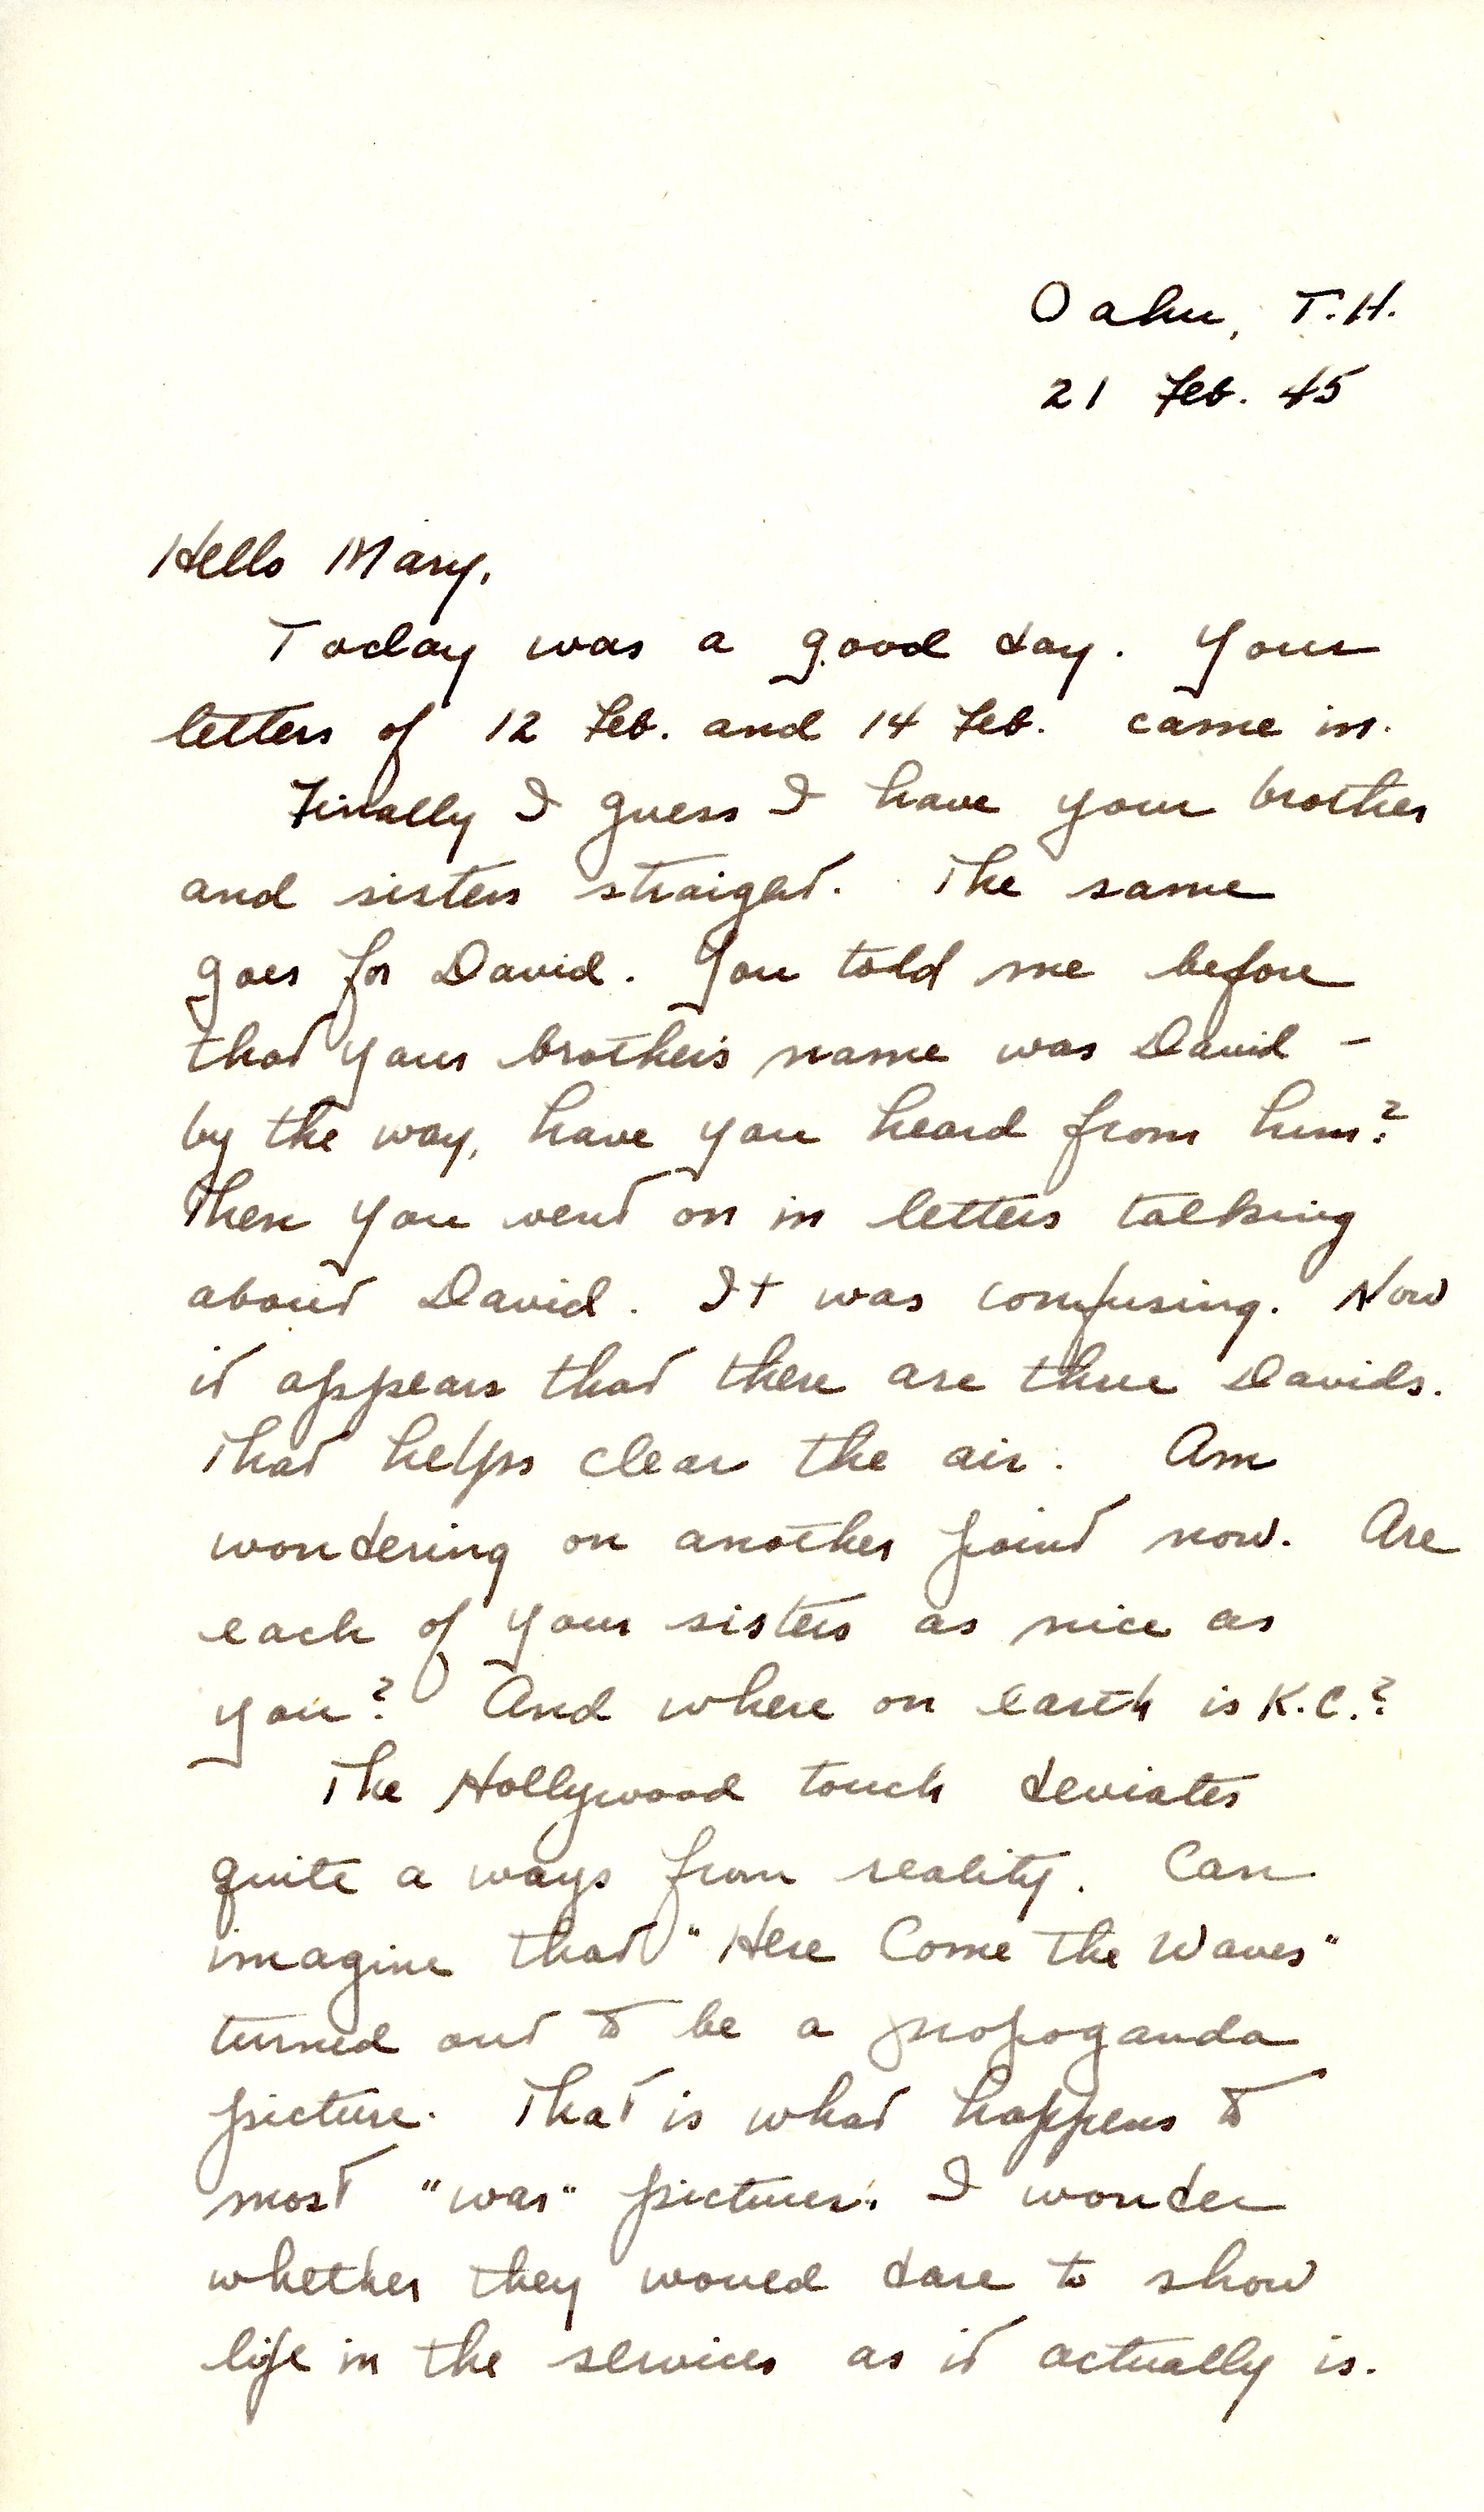 Oahu, T.H.
21 Feb. 45
Hello Mary,
Today was a good day. Your
letters of 12 Feb. and 14 Feb. came in.
Finally I guess I have your brother
and sisters straight. The same
goes for David. You told me before
that your brother's name was David –
by the way, have you heard from him?
Then you went on in letters talking
about David. It was confusing. Now
it appears that there are three Davids.
That helps clear the air. Am
wondering on another point now. Are
each of your sisters as nice as
you? And where on earth is K.C.?
The Hollywood touch deviates
quite a ways from reality. Can
imagine that "Here Come the Waves"
turned out to be a propoganda
picture. That is what happens to
most "war" pictures. I wonder
whether they would dare to show
life in the services as it actually is.